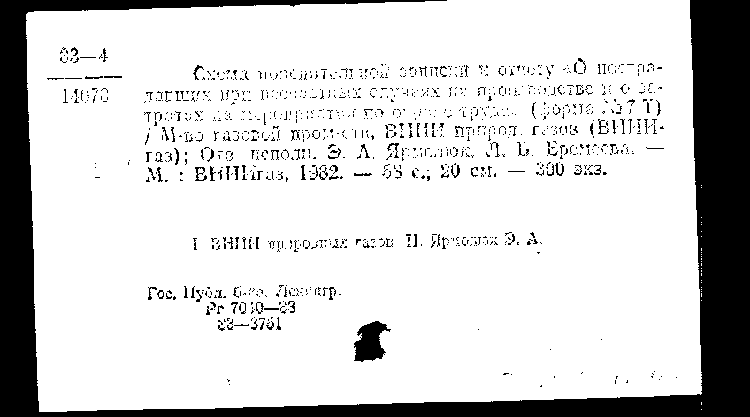 83—4
14078
Схема пояснительной записки к отчету «О постра-
давших при несчастных случаях на производстве и о за-
тратах на мероприятия по охране труда» (форма № 7 Т)
/ М-во газовой пром-сти, ВНИИ природ. газов (ВНИИ-
газ); Отв. исполн. Э. А. Ярмолюк, Л. В. Еремеева. —
М. : ВНИИгаз, 1982. — 68 с.; 20 см. — 300 экз.
I. ВНИИ природных газов. II. Ярмолюк Э. А.
Гос. Публ. б-ка. Ленингр.
Рг 7040—83
83—3761